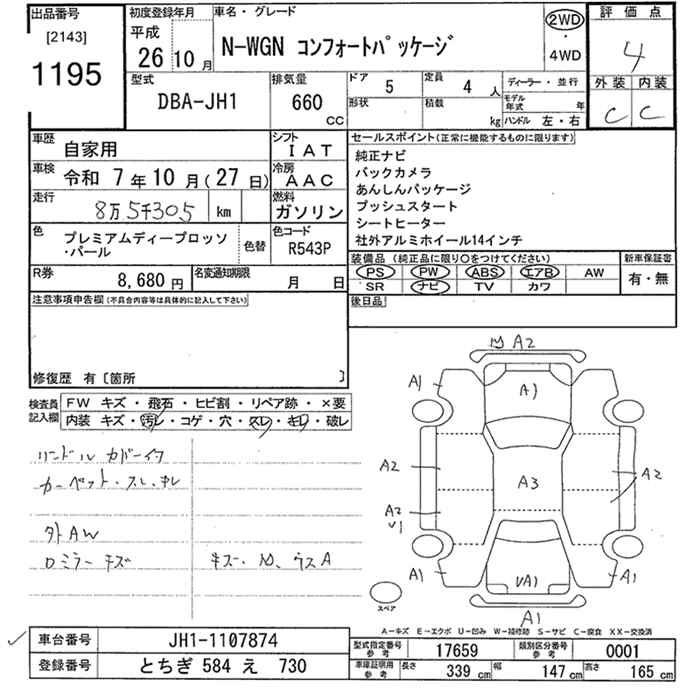 出品番号
[2143]
1195
初度登録年月
平成
26 10月
車名・グレード
N-WGN コンフォートパッケージ
2WD
・
4WD
評価点
4
外装 内装
C C
型式
DBA-JH1
排気量
660
CC
ドア 5
形状
定員 4 人
積載 kg
ディーラー・並行
モデル年式 年
ハンドル 左・右
車歴 自家用
シフト IAT
車検 令和 7年10月(27日)
冷房 AAC
走行 8万5千305 km
燃料 ガソリン
色 プレミアムディープロッソ・パール
色替
色コード R543P
R券 8,680円
名変通知期限 月 日
セールスポイント(正常に機能するものに限ります)
純正ナビ
バックカメラ
あんしんパッケージ
プッシュスタート
シートヒーター
社外アルミホイール14インチ
装備品(純正品に限り○をつけてください)
PS PW ABS エアB AW
SR ナビ TV カワ
新車保証書
有・無
後日品
注意事項申告欄(不具合内容等は具体的に記入して下さい)
修復歴 有〔箇所 〕
検査員記入欄
FW キズ・飛石・ヒビ割・リペア跡・×要
内装 キズ・汚レ・コゲ・穴・スレ・キレ・破レ
カーペット・スレ・キレ
外AW
ロミラーキズ
A2
A1 A1
A1
A2 A3 A2
A2
A1 A1
VA1
A1
スペア
A-キズ E-エクボ U-凹み W-補修跡 S-サビ C-腐食 XX-交換済
車台番号 JH1-1107874
登録番号 とちぎ 584 え 730
型式指定番号 参考 17659
類別区分番号 参考 0001
車庫証明用 参考 長さ 339 cm 幅 147 cm 高さ 165 cm